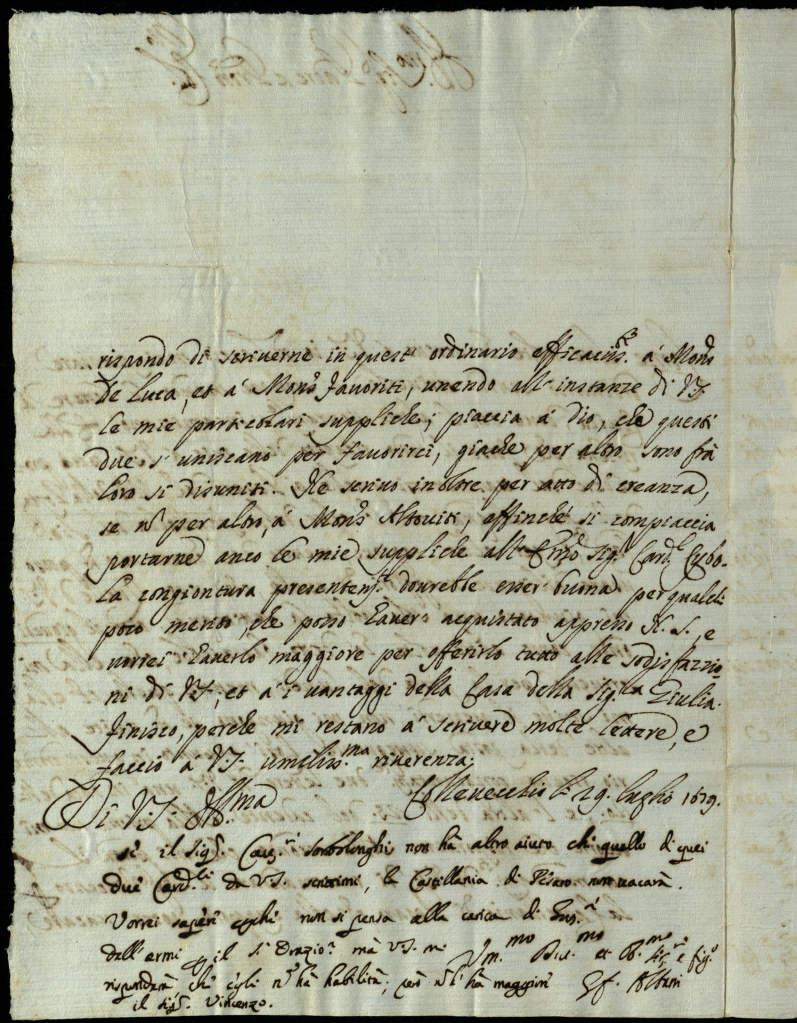 rispondo di scriverne in quest' ordinario efficaciss.e à Mons.
de Luca, et à Mons. Favoriti, unendo all' instanze di V.S.
le mie particolari suppliche; piaccia à Dio, che questi
due si uniscano per favorirci, giache per altro sono frà
loro sì disuniti. Ne scrivo inoltre per atto di creanza,
se n per altro, à Mons. Altoviti, affinche si compiaccia
portarne anco le mie suppliche all' Em.o Sig. Card. Cybo.
La congiontura presentem.te dourebbe esser buona per qualche
poco merito, che posso haver' acquistato appresso N. S., e
vorrei haverlo maggiore per offerirlo tutto alle sodisfazzio-
ni di V.S., et à i vantaggi della Casa della Sig.ra Giulia.
Finisco, perche mi restano à scrivere molte lettere, e
faccio à V.S. umiliss.ma riverenza.
Di V.S. Ill.ma Collevecchio li 29. luglio 1679.
Se il Sig. Cav. non hà altro aiuto che quello di quei
due Card.li da V.S. scrittimi, la Castellania di Pesaro non vacarà.
Vorrei sapere perche non si pensa alla carica di
dell' armi il S. Orazio mà V.S. m
risponderà che egli n hà habilità; però n l' hà maggiore
il Sig. Vincenzo.
Um.mo Div.mo et Ob.mo ser.re e fig.o
Gf. Albani